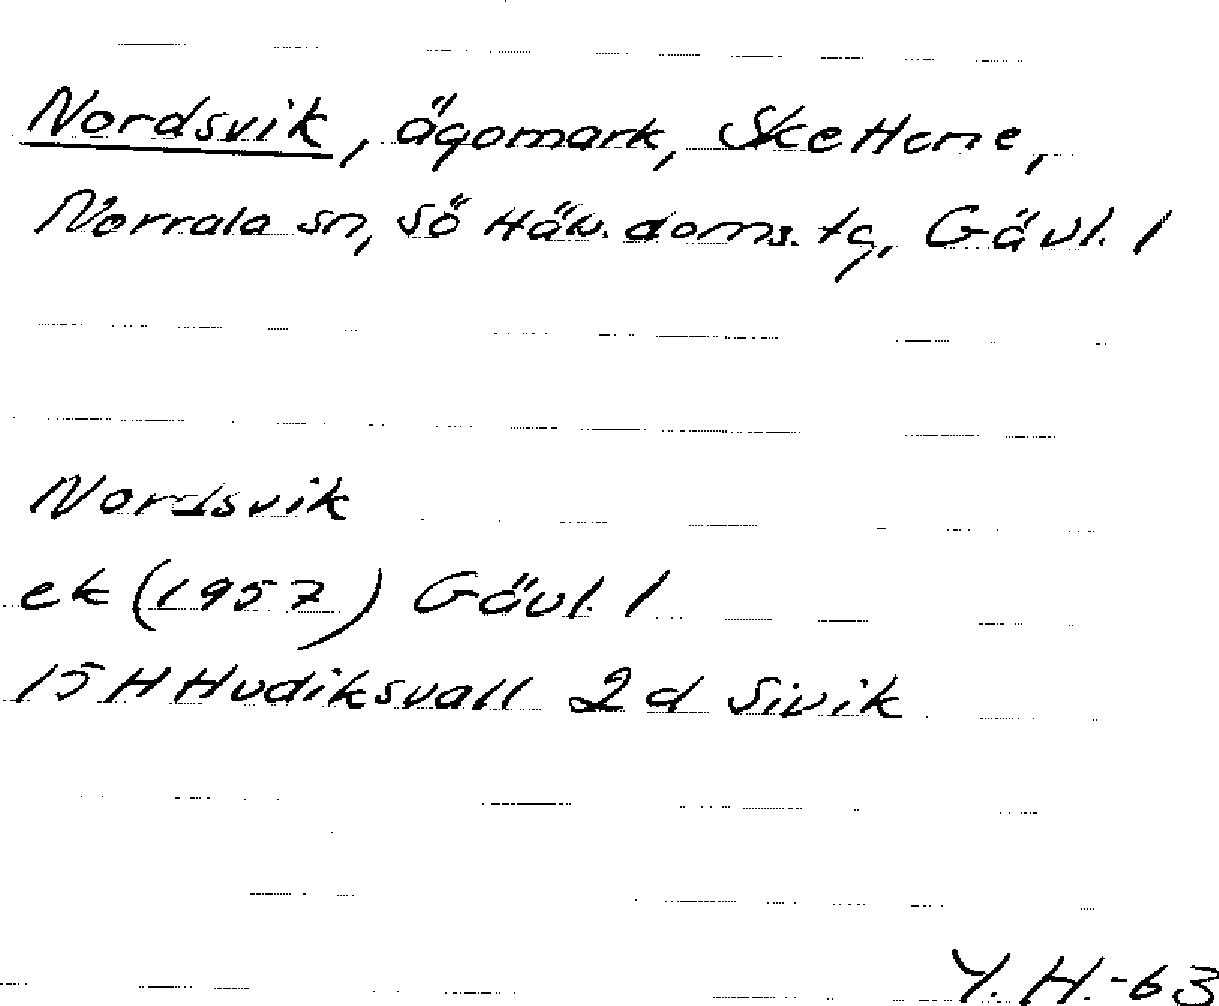 Nordsvik, ägomark, Skettene,
Norrala sn, Sö Häls. doms. tg, Gävl. l
Nordsvik
ek (1957) Gävl. l
15 H Hudiksvall 2 d Sivik
Y. H. -63